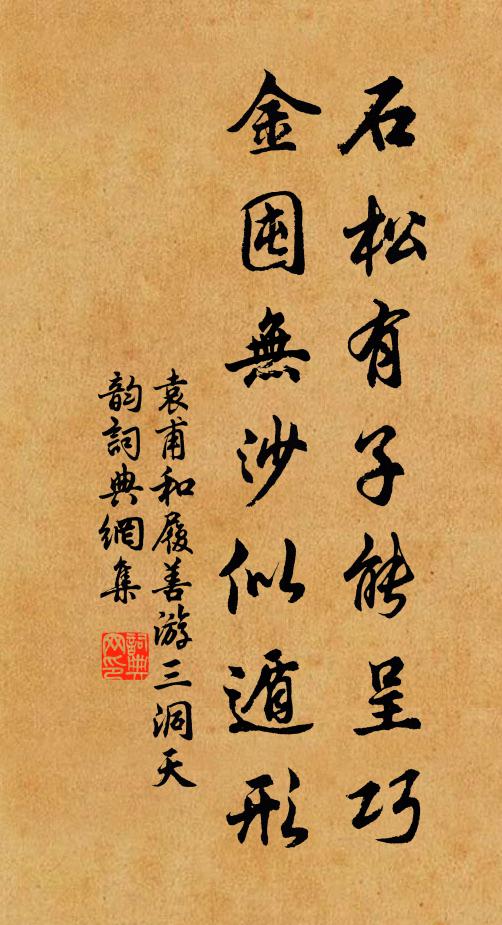 石松有子能呈巧
金囤無沙似遁形
袁甫和履善游三洞天
韵詞典網集
詞典网印